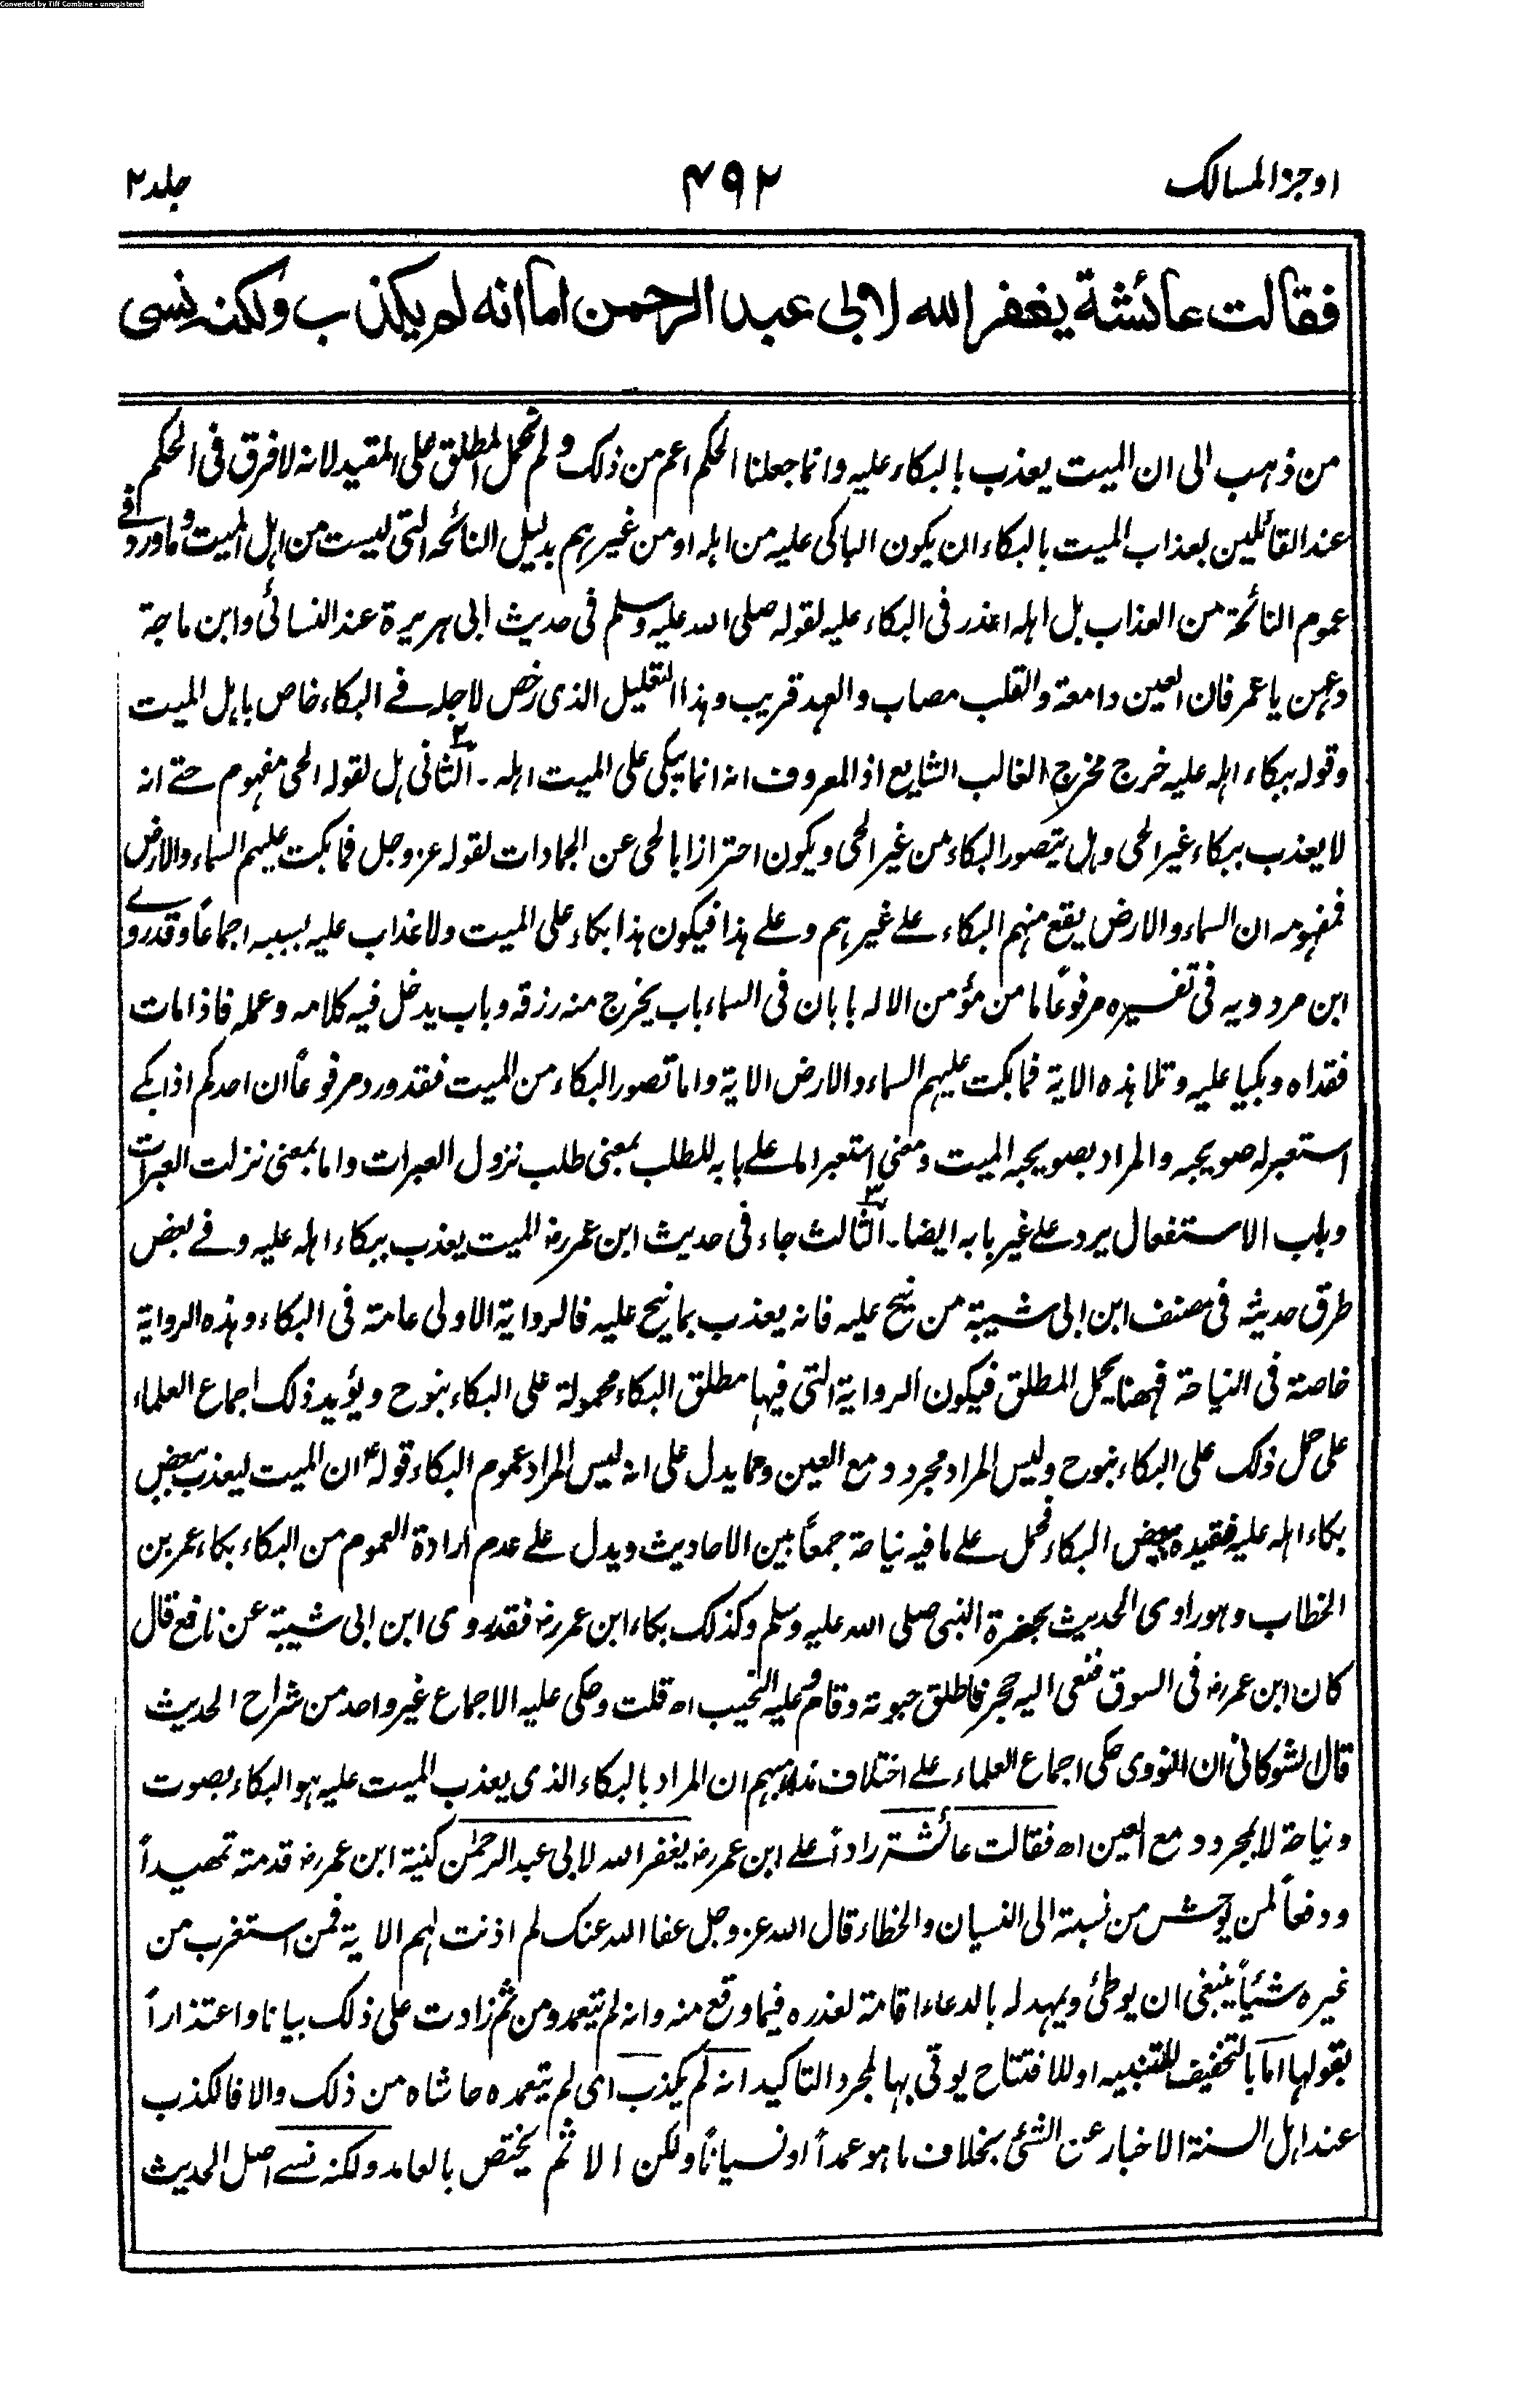 Converted by Tiff Combine - unregistered
اوجز المسالك ۴۹۲ جلد ۲
فقالت عائشة يغفر الله لابي عبد الرحمن اما انه لم يكذب ولكنه نسى
من ذهب الى ان الميت يعذب بالبكاء عليه وانما جعلنا الحكم اعم من ذلك ولم نحمل المطلق على المقيد لانه لا فرق فى الحكم
عند القائلين بعذاب الميت بالبكاء ان يكون الباكى عليه من اهله او من غيرهم بدليل النائحة التى ليست من اهل الميت وما ورد فے
عموم النائحة من العذاب بل اهله اعذر فى البكاء عليه لقوله صلى الله عليه وسلم فى حديث ابى هريرة عند النسائى وابن ماجة
دعهن يا عمر فان العين دامعة والقلب مصاب والعهد قريب وهذا التعليل الذى رخص لاجله فے البكاء خاص باهل الميت
وقوله ببكاء اهله عليه خرج مخرج الغالب الشايع اذ المعروف انه انما يبكى على الميت اهله ۔ الثانى ۲ هل لقوله الحى مفهوم حتے انه
لا يعذب ببكاء غير الحى وهل يتصور البكاء من غير الحى ويكون احترازا بالحى عن الجمادات لقوله عز وجل فما بكت عليهم السماء والارض
فمفهومه ان السماء والارض يقع منهم البكاء علے غيرهم وعلے هذا فيكون هذا بكاء على الميت ولا عذاب عليه بسببه اجماعاً وقد روے
ابن مردويه فى تفسيره مرفوعاً ما من مؤمن الا له بابان فى السماء باب يخرج منه رزقه وباب يدخل فيه كلامه وعمله فاذا مات
فقداه وبكيا عليه وتلا هذه الاية فما بكت عليهم السماء والارض الاية واما تصور البكاء من الميت فقد ورد مرفوعاً ان احدكم اذا بكے
استعبر له صويحبه والمراد بصويحبه الميت ومعنى استعبر اما علے بابه للطلب بمعنى طلب نزول العبرات واما بمعنى نزلت العبرات
وباب الاستفعال يرد علے غير بابه ايضا ۔ الثالث ۳ جاء فى حديث ابن عمر رض الميت يعذب ببكاء اهله عليه وفے بعض
طرق حديثه فى مصنف ابن ابى شيبة من نيح عليه فانه يعذب بما نيح عليه فالرواية الاولى عامة فى البكاء وهذه الرواية
خاصة فى النياحة فههنا يحمل المطلق فيكون الرواية التى فيها مطلق البكاء محمولة على البكاء بنوح ويؤيد ذلك اجماع العلماء
على حمل ذلك على البكاء بنوح وليس المراد مجرد دمع العين ومما يدل على انه ليس المراد عموم البكاء قوله ؑ ان الميت ليعذب ببعض
بكاء اهله عليه فقيده ببعض البكاء فحمل علے ما فيه نياحة جمعاً بين الاحاديث ويدل علے عدم ارادة العموم من البكاء بكاء عمر بن
الخطاب وهو راوى الحديث بحضرة النبى صلى الله عليه وسلم وكذلك بكاء ابن عمر رض فقد روى ابن ابى شيبة عن نافع قال
كان ابن عمر رض فى السوق فنعى اليه حجر فاطلق حبوته وقام وعليه النحيب اه قلت وحكى عليه الاجماع غير واحد من شراح الحديث
قال الشوكانى ان النووى حكى اجماع العلماء علے اختلاف مذاهبهم ان المراد بالبكاء الذى يعذب الميت عليه هو البكاء بصوت
ونياحة لا بمجرد دمع العين اه فقالت عائشة راداً علے ابن عمر رض يغفر الله لابى عبد الرحمٰن كنية ابن عمر رض قدمته تمهيداً
ودفعاً لمن يوحش من نسبته الى النسيان والخطاء قال الله عز وجل عفا الله عنك لم اذنت لهم الاية فمن استغرب من
غيره شيئاً ينبغى ان يوطئ ويمهد له بالدعاء اقامة لعذره فيما وقع منه وانه لم يتعمد ومن ثم زادت على ذلك بيانا واعتذاراً
بقولها اما بالتخفيف للتنبيه او للافتتاح يوتى بها لمجرد التاكيد انه لم يكذب اى لم يتعمده حاشاه من ذلك والا فالكذب
عند اهل السنة الاخبار عن الشئ بخلاف ما هو عمداً او نسياناً ولكن الاثم يختص بالعامد ولكنه نسے اصل الحديث